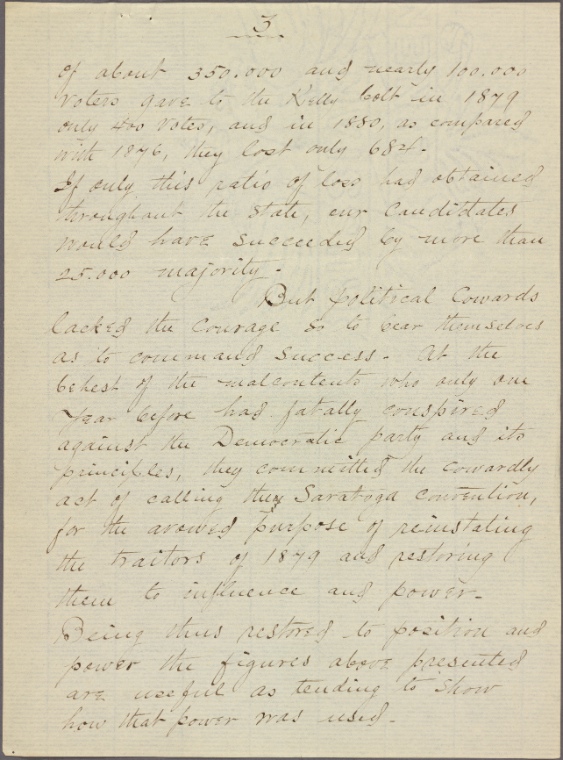 3
of about 350.000 and nearly 100.000
voters gave to the Kelly bolt in 1879
only 400 votes, and in 1880, as compared
with 1876, they lost only 684.
If only this ratio of loss had obtained
throughout the State, our Candidates
would have succeeded by more than
25.000 majority.
But political Cowards
lacked the Courage so to bear themselves
as to command success. At the
behest of the malcontents who only one
year before had fatally conspired
against the Democratic party and its
principles, they committed the cowardly
act of calling the Saratoga convention,
for the avowed purpose of reinstating
the traitors of 1879 and restoring
them to influence and power.
Being thus restored to position and
power the figures above presented
are useful as tending to show
how that power was used.